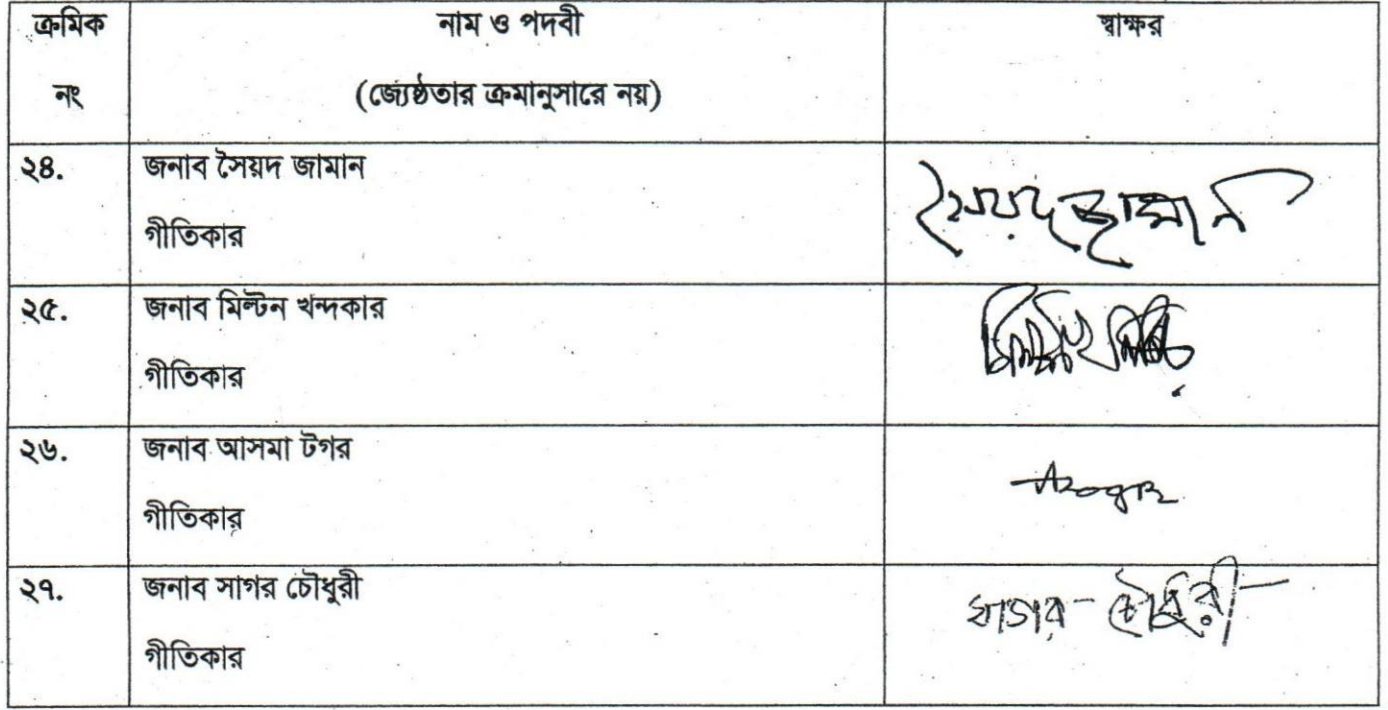 ক্রমিক নং
নাম ও পদবী
(জ্যেষ্ঠতার ক্রমানুসারে নয়)
স্বাক্ষর
২৪.
জনাব সৈয়দ জামান
গীতিকার
সৈয়দ জামান
২৫.
জনাব মিল্টন খন্দকার
গীতিকার
২৬.
জনাব আসমা টগর
গীতিকার
২৭.
জনাব সাগর চৌধুরী
গীতিকার
সাগর চৌধুরী